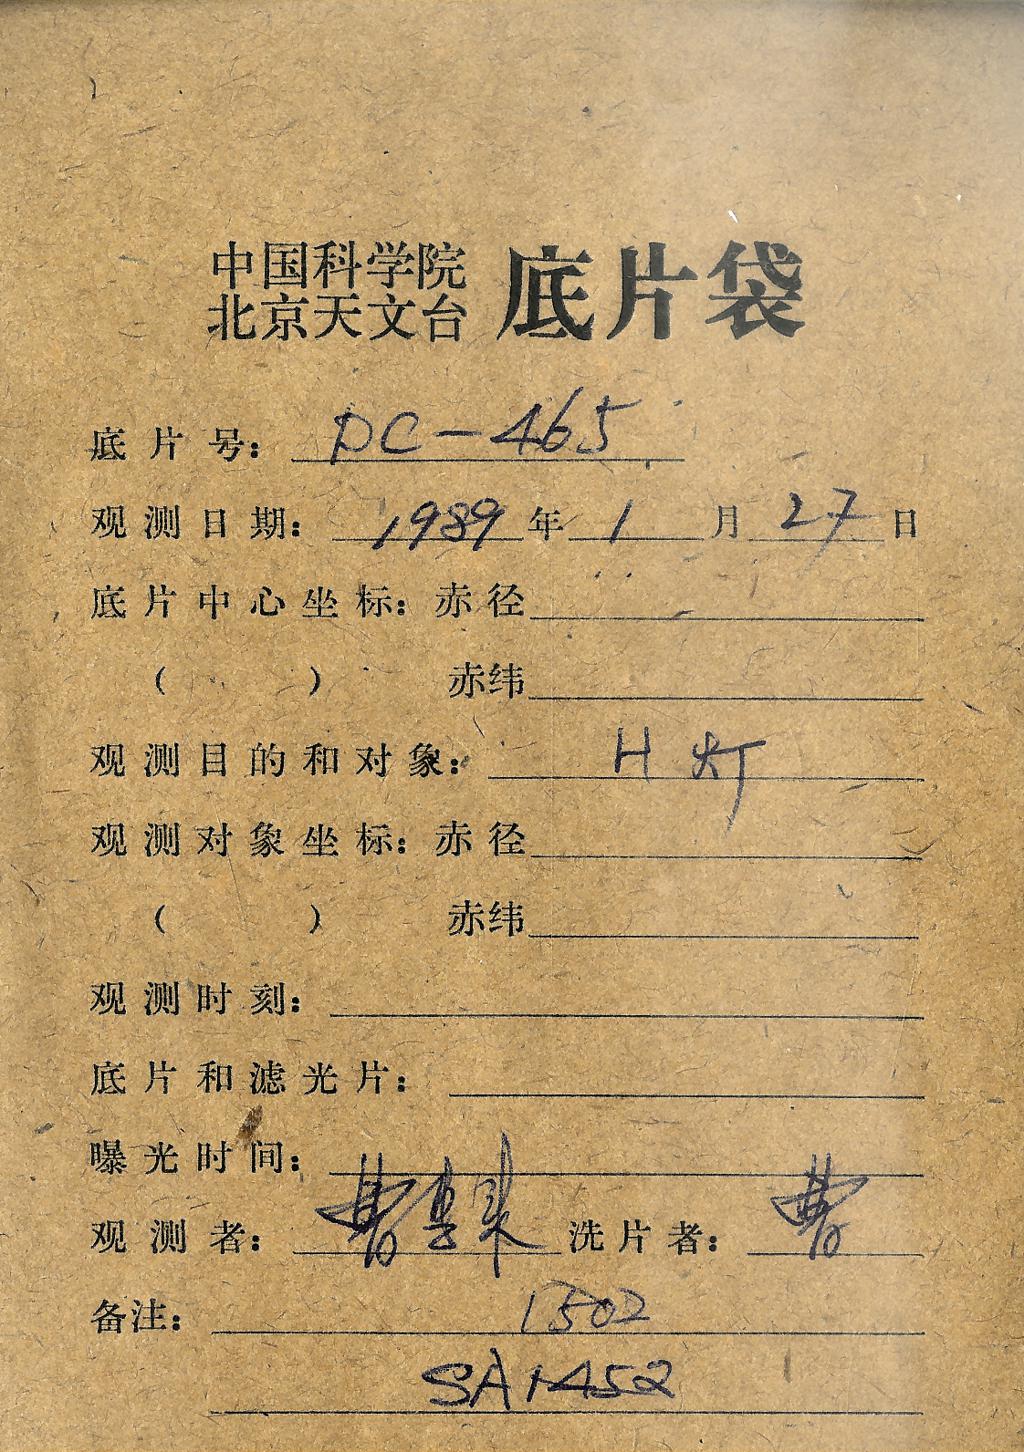 中国科学院
北京天文台 底片袋
底片号: DC-465
观测日期: 1989年1月27日
底片中心坐标: 赤径
( ) 赤纬
观测目的和对象: H灯
观测对象坐标: 赤径
( ) 赤纬
观测时刻:
底片和滤光片:
曝光时间:
观测者: 洗片者: 曹
备注: 1502
SA1452